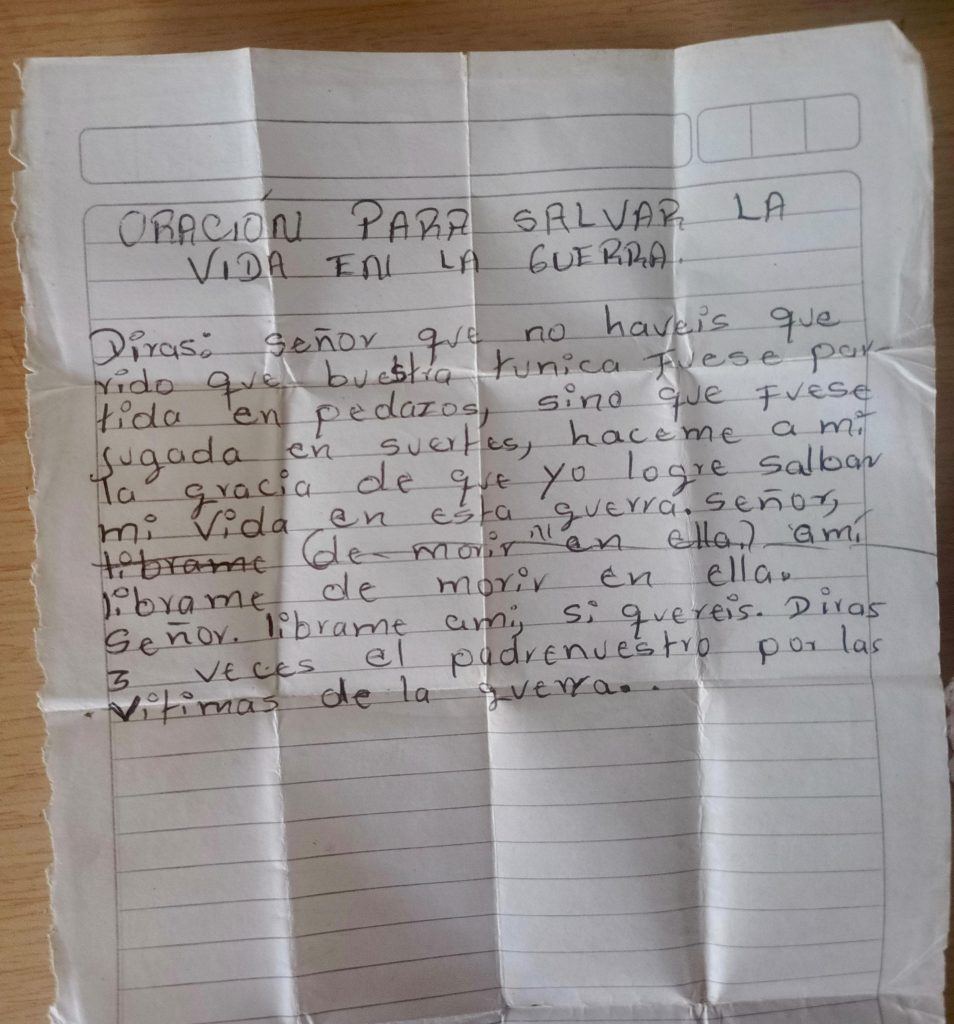 ORACIÓN PARA SALVAR LA
VIDA EN LA GUERRA.
Diras: señor que no haveis que
rido que buestra tunica fuese par-
tida en pedazos, sino que fuese
jugada en suertes, haceme a mi
la gracia de que yo logre salbar
mi vida en esta guerra. señor,
librame (de morir en ella) ami
librame de morir en ella.
señor. librame ami, si quereis. Diras
3 veces el padrenuestro por las
vitimas de la guerra..